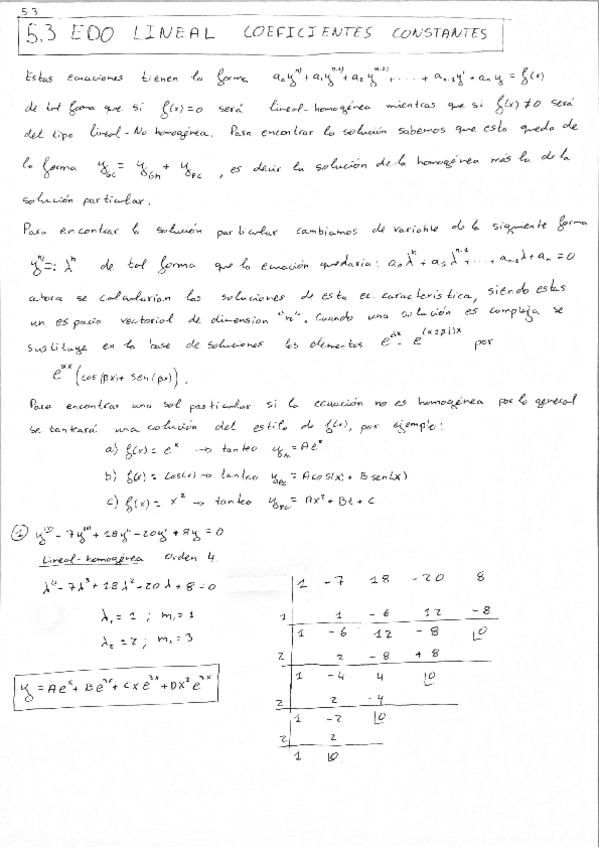 5.3
5.3 EDO LINEAL COEFICIENTES CONSTANTES
Estas ecuaciones tienen la forma a₀y⁽ⁿ⁾ + a₁y⁽ⁿ⁻¹⁾ + a₂y⁽ⁿ⁻²⁾ + .... + aₙ₋₁y' + aₙy = f(x)
de tal forma que si f(x) = 0 será lineal-homogénea mientras que si f(x) ≠ 0 será
del tipo lineal-No homogénea. Para encontrar la solución sabemos que esta queda de
la forma y = y + y , es decir la solución de la homogénea más la de la
solución particular.
Para encontrar la solución particular cambiamos de variable de la siguiente forma
y⁽ⁿ⁾ =: λⁿ de tal forma que la ecuación quedaría: a₀λⁿ + a₁λⁿ⁻¹ + ... + aₙ₋₁λ + aₙ = 0
ahora se calcularían las soluciones de esta ec. característica, siendo estas
un espacio vectorial de dimension "n". Cuando una solución es compleja se
sustituye en la base de soluciones los elementos e e^(α±βi)x por
e^αx (cos(βx) + sen(βx)).
Para encontrar una sol particular si la ecuación no es homogénea por lo general
se tanteará una solución del estilo de f(x), por ejemplo:
a) f(x) = eˣ → tanteo y = Aeˣ
b) f(x) = cos(x) → tanteo y = A cos(x) + B sen(x)
c) f(x) = x² → tanteo y = Ax² + Bt + C
① y - 7y + 18y'' - 20y' + 8y = 0
Lineal-homogénea Orden 4.
λ⁴ - 7λ³ + 18λ² - 20λ + 8 = 0
λ₁ = 1 ; m₁ = 1
λ₂ = 2 ; m₂ = 3
y = Aeˣ + Be + Cxe + Dx²e
1 -7 18 -20 8
1 1 -6 12 -8
1 -6 12 -8 0
2 2 -8 +8
1 -4 4 0
2 2 -4
1 -2 0
2 2
1 0